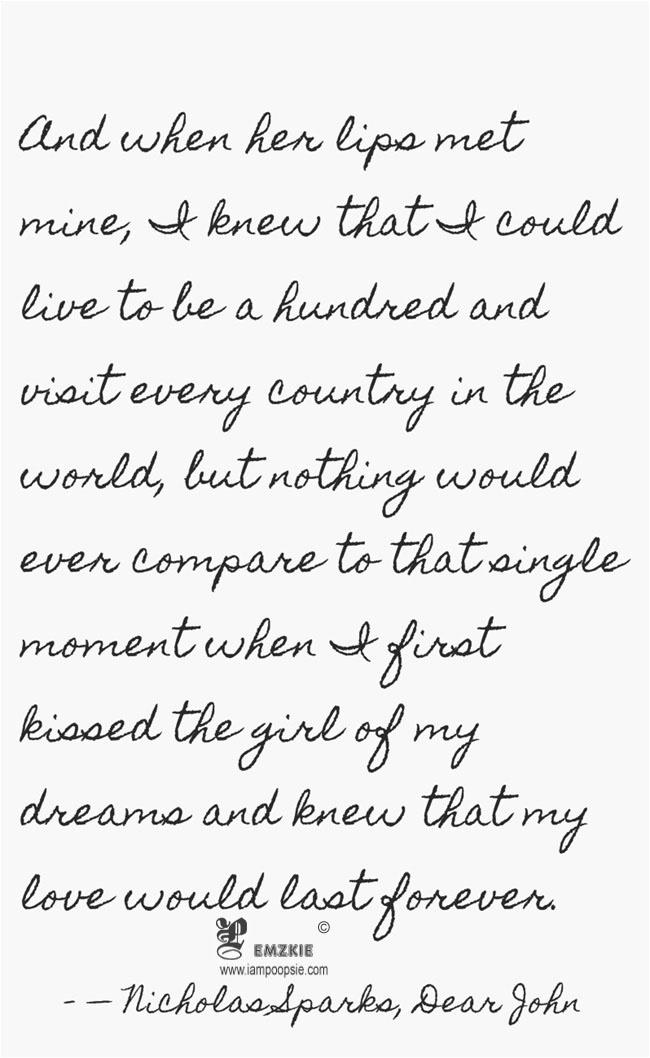 And when her lips met
mine, I knew that I could
live to be a hundred and
visit every country in the
world, but nothing would
ever compare to that single
moment when I first
kissed the girl of my
dreams and knew that my
love would last forever.
©
EMZKIE
www.iampoopsie.com
-- Nicholas Sparks, Dear John